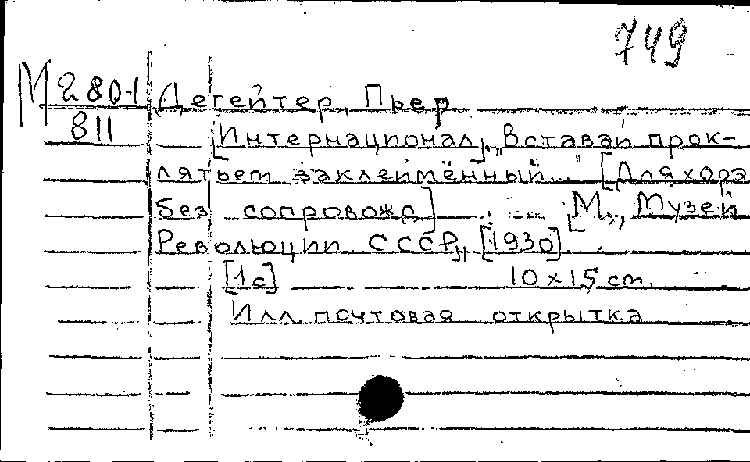 749
М 280-1 Дегейтер, Пьер
811 [Интернационал]. "Вставай прок-
лятьем заклеймённый..." [Для хора
без сопровожд] М., Музей
Революции СССР, [1930]
[1с] 10х15 см.
Илл. почтовая открытка